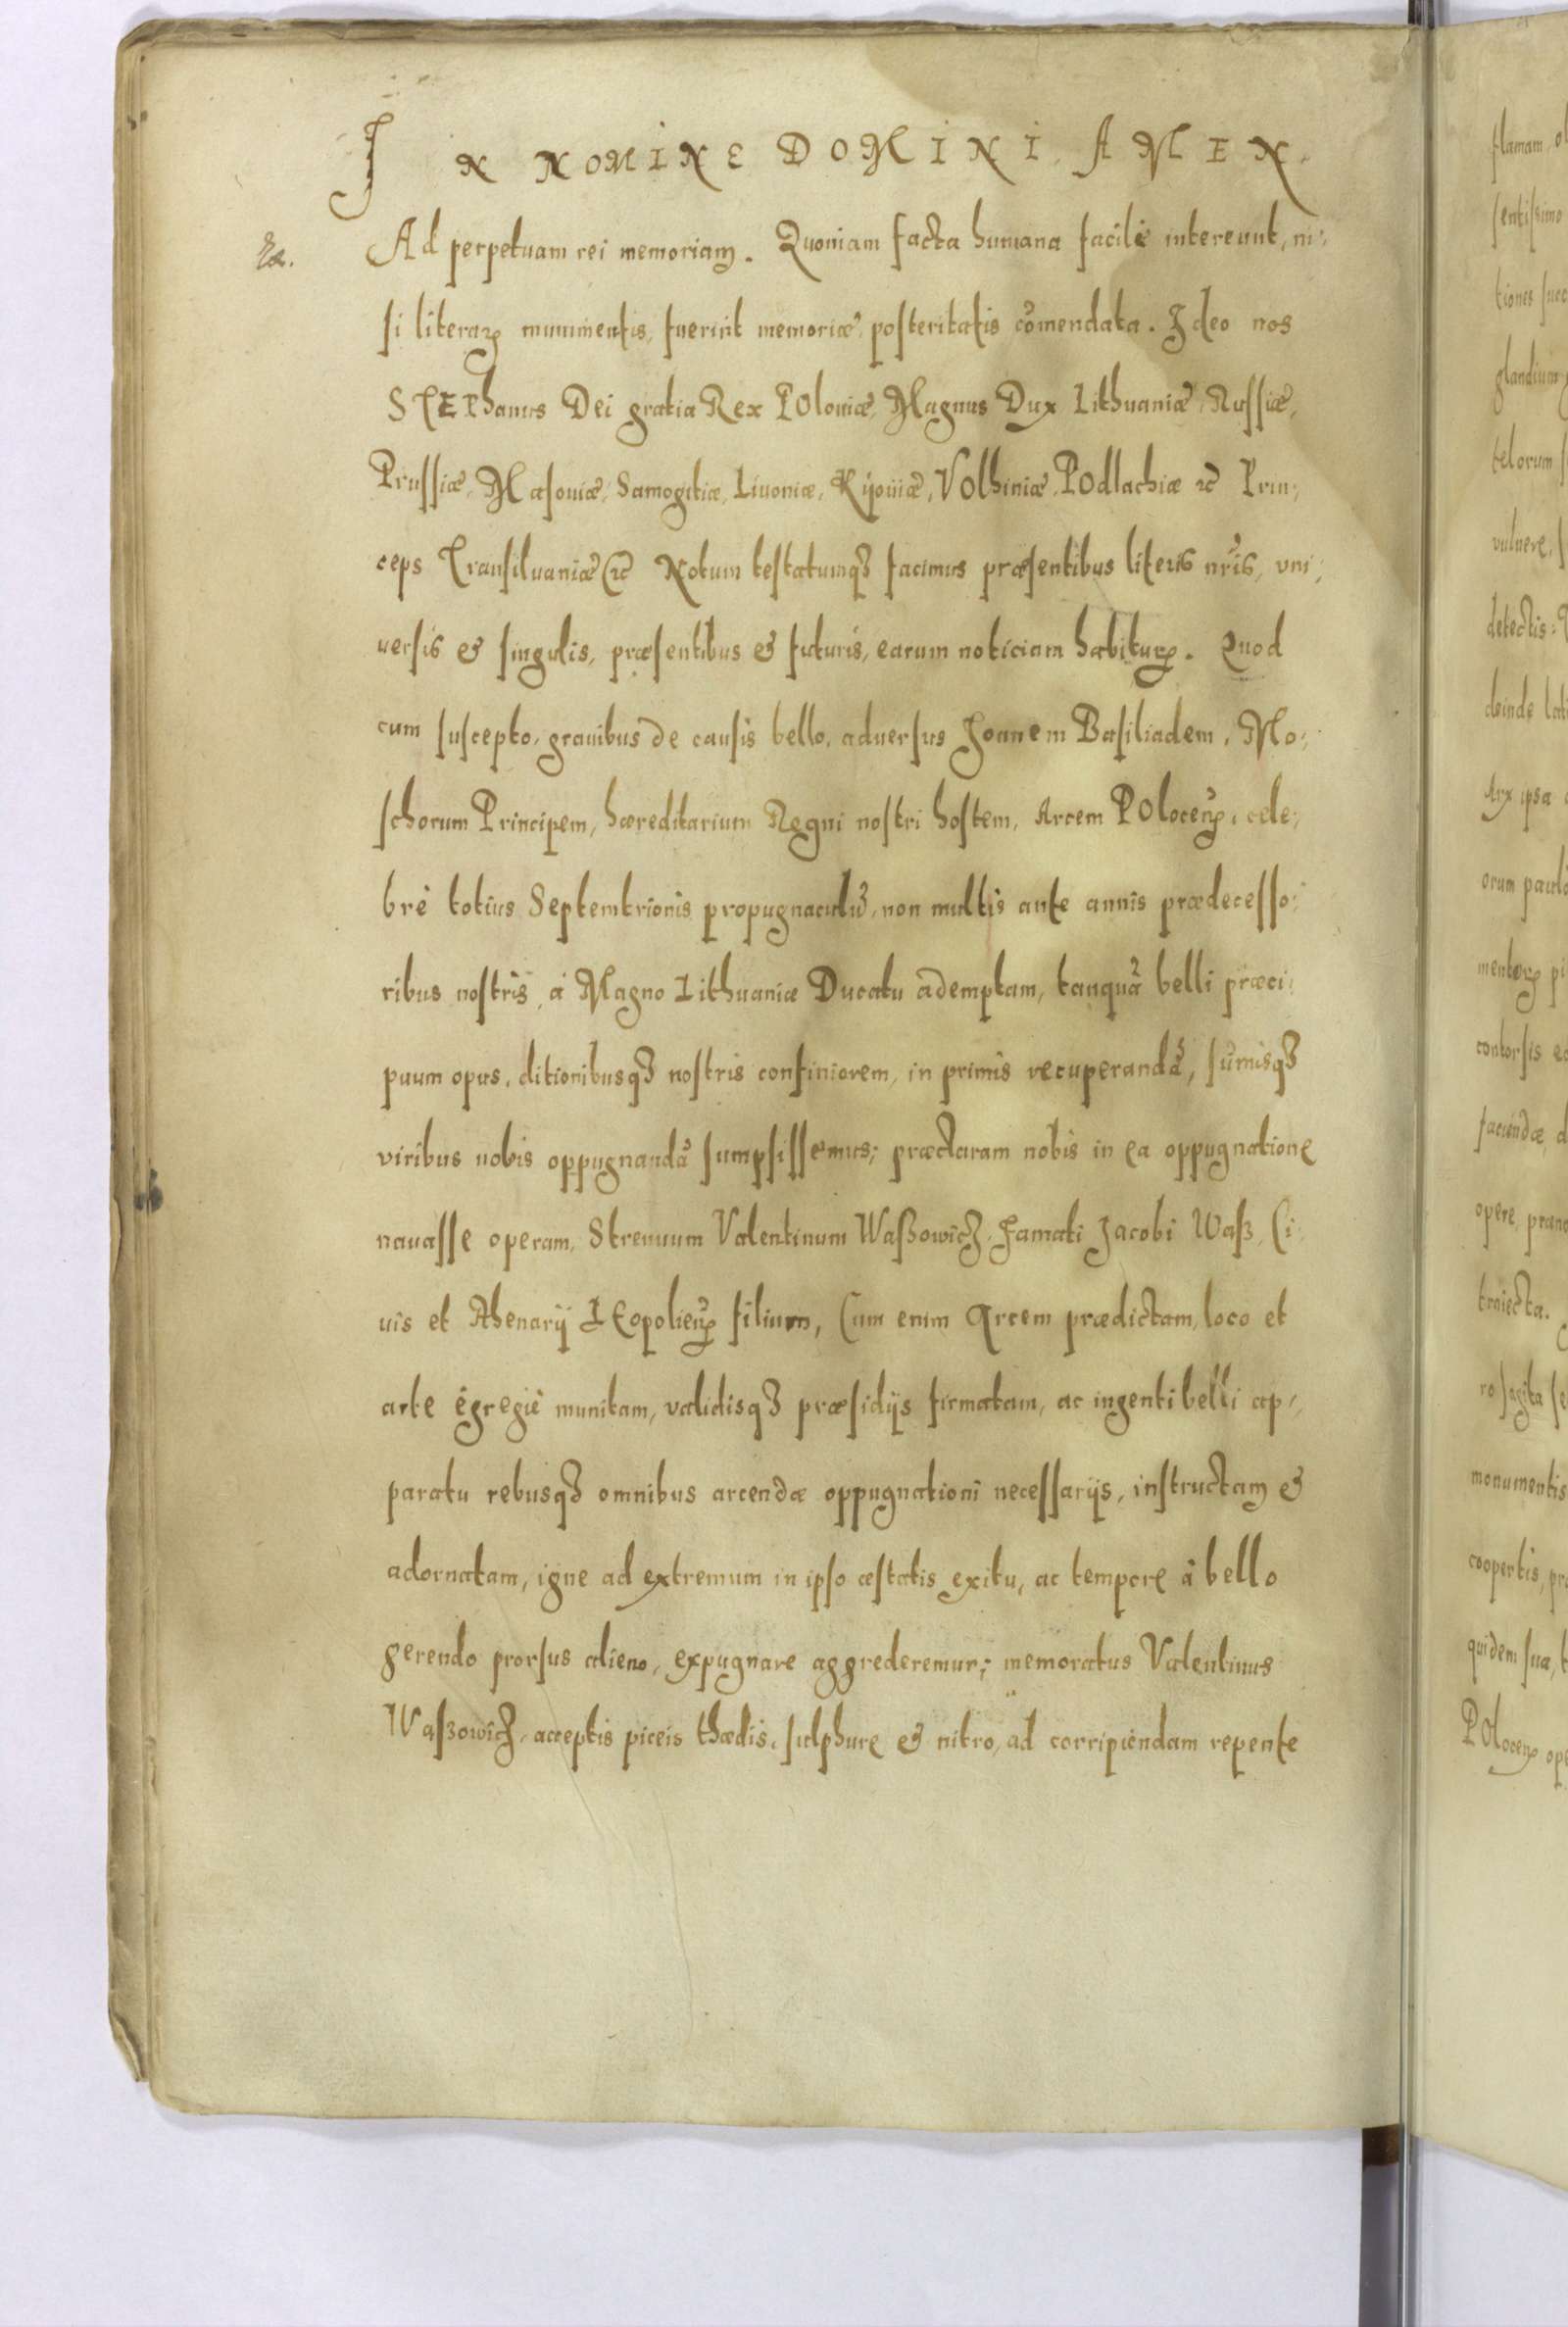 IN NOMINE DOMINI AMEN.
Ad perpetuam rei memoriam. Quoniam facta humana facilè intereunt, ni:
si literaꝝ munimentis, fuerint memoriæ, posteritatis cõmendata. Ideo nos
STEPhanus Dei gratia Rex POloniæ, Magnus Dux Lithuaniæ, Russiæ,
Prussiæ, Masouiæ, Samogitiæ, Liuoniæ, Kijouiæ, VOlhiniæ, POdlachiæ ꝛc Prin:
ceps Transiluaniæ ꝛc Notum testatumqꝫ facimus præsentibus literis nr̃is, vni:
uersis & singulis, præsentibus & futuris, earum noticiam habituꝝ. Quod
cum suscepto, grauibus de causis bello, aduersus Joanem Basiliadem, Mo:
schorum Principem, hæreditarium Regni nostri hostem, Arcem POloceñ, cele:
brẽ totius Septemtrionis propugnaculũ, non multis ante annis prædecesso:
ribus nostris, à Magno Lithuaniæ Ducatu ademptam, tanquã belli præci:
puum opus, ditionibusqꝫ nostris confiniorem, in primis recuperandã, sum̃isqꝫ
viribus nobis oppugnandã sumpsissemus; præclaram nobis in ea oppugnatione
nauasse operam, Strenuum Valentinum Waßowicz, Famati Jacobi Waß, Ci:
uis et Ahenarij LEopolieñ filium, Cum enim Arcem prædictam, loco et
arte égregiè munitam, validisqꝫ præsidijs firmatam, ac ingenti belli ap:
paratu rebusqꝫ omnibus arcendæ oppugnationi necessarijs, instructam &
adornatam, igne ad extremum in ipso æstatis exitu, ac tempore à bello
gerendo prorsus alieno, expugnare aggrederemur; memoratus Valentinus
Waßowicz, acceptis piceis thædis, sulphure & nitro, ad corripiendam repente
flamam
sentissimo
tiones
telorum
vulnere,
detectis:
deinde
Arx ipsa
orum
contorsis
faciendæ,
opere,
traiecta.
ro sagita
monumentis
coopertis,
quidem sua,
POloceñ